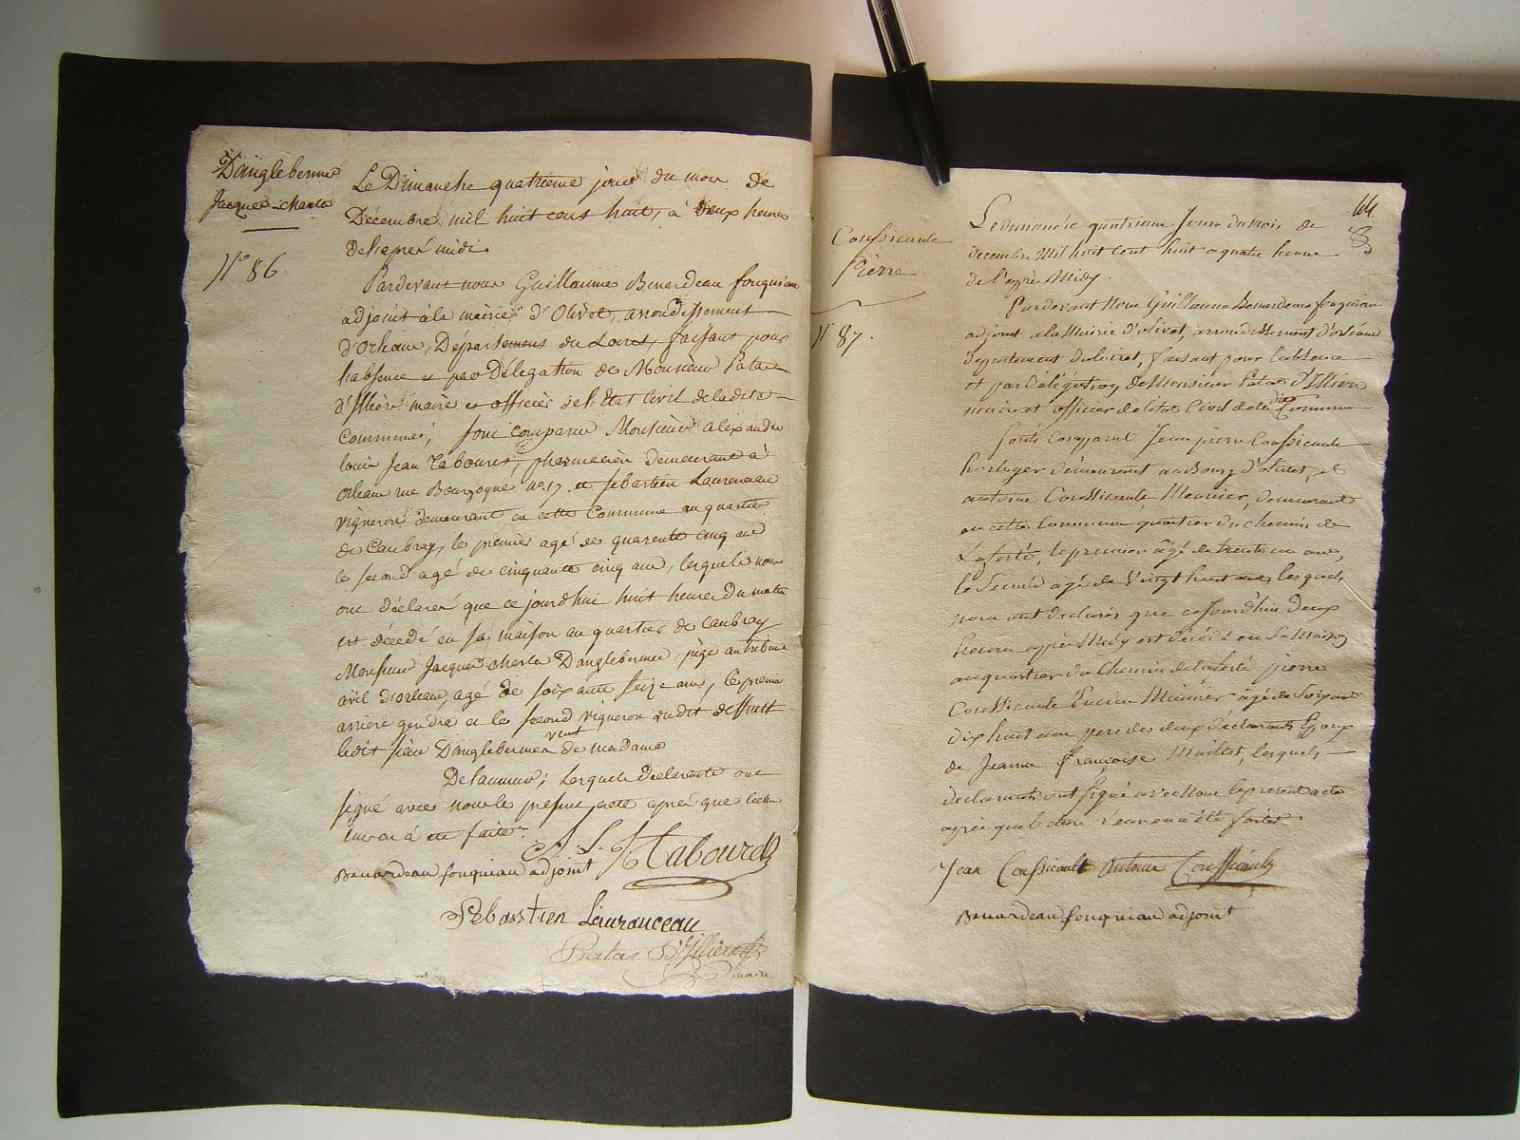 Danglebermes
Jacques-Charles
N° 86.
Le Dimanche quatrieme jour du mois de
Décembre mil huit cens huit, à deux heures
de l'apres midi
Pardevant nous Guillaume Benardeau fouqueau
adjoint à la mairie d'Olivet, arrondissement
d'Orleans, Département du Loiret, faisant pour
l'absence et par Délégation de Monsieur Patas
d'Illiers maire et officier de l'Etat Civil de ladite
Commune; sont comparus Monsieur alexandre
louis Jean Tabouret, pharmacien demeurant à
Orleans rue Bourgogne no. 17. et Sebastien Laurenceau
vigneron demeurant en cette Commune au quartier
de Caubray, le premier agé de quarente cinq ans
le second agé de cinquante cinq ans, lesquels nous
ont déclaré que ce jourdhui huit heures du matin
est décedé en sa maison au quartier de Caubray
Monsieur Jacques charles Danglebermes, juge au tribunal
civil d'orleans, agé de soixante seize ans, le premier
arriere gendre et le second vigneron dudit deffunt
ledit sieur Danglebermes veuf de madame
Delaumur; lesquels déclarants ont
signé avec nous le present acte après que lecture
leur en à eté faite.
A. L. J. Tabouret
Benardeau fouqueau adjoint
Sebasstien Lauranceau
Patas D'Illiers
maire
64
Coussicault
Pierre
N° 87.
Le dimanche quatrieme Jour du mois de
decembre Mil huit Cent huit a quatre heures
de l'après Midy.
Pardevant Nous Guillaume Benardeau fouqueau
adjoint a la Mairie d'olivet, arrondissement d'orleans
departement du loiret, faisant pour l'absence
et par Délégation de Monsieur Patas d'Illiers
maire et officier de l'etat Civil de ladite Commune
Sont Comparus Jean pierre Coussicault
horloger demeurant au Bourg d'olivet, et
antoine Coussicault Meunier, demeurant
en cette Commune quartier du chemin de
Laferté, le premier âgé de trente un ans,
le Second agé de Vingt huit ans, lesquels
nous ont declarés que cejourd'hui deux
heures après Midy est décédé en Sa Maison
au quartier du Chemin de laferté pierre
Coussicault ancien Meunier, âgé de Soixante
dix huit ans pere des deux déclarants Epoux
de Jeanne françoise Maillet, lesquels
declarants ont Signé avec Nous le present acte
après que lecture Leur en a été faite.
Jean Coussicault Antoine Coussicault
Benardeau fouqueau adjoint